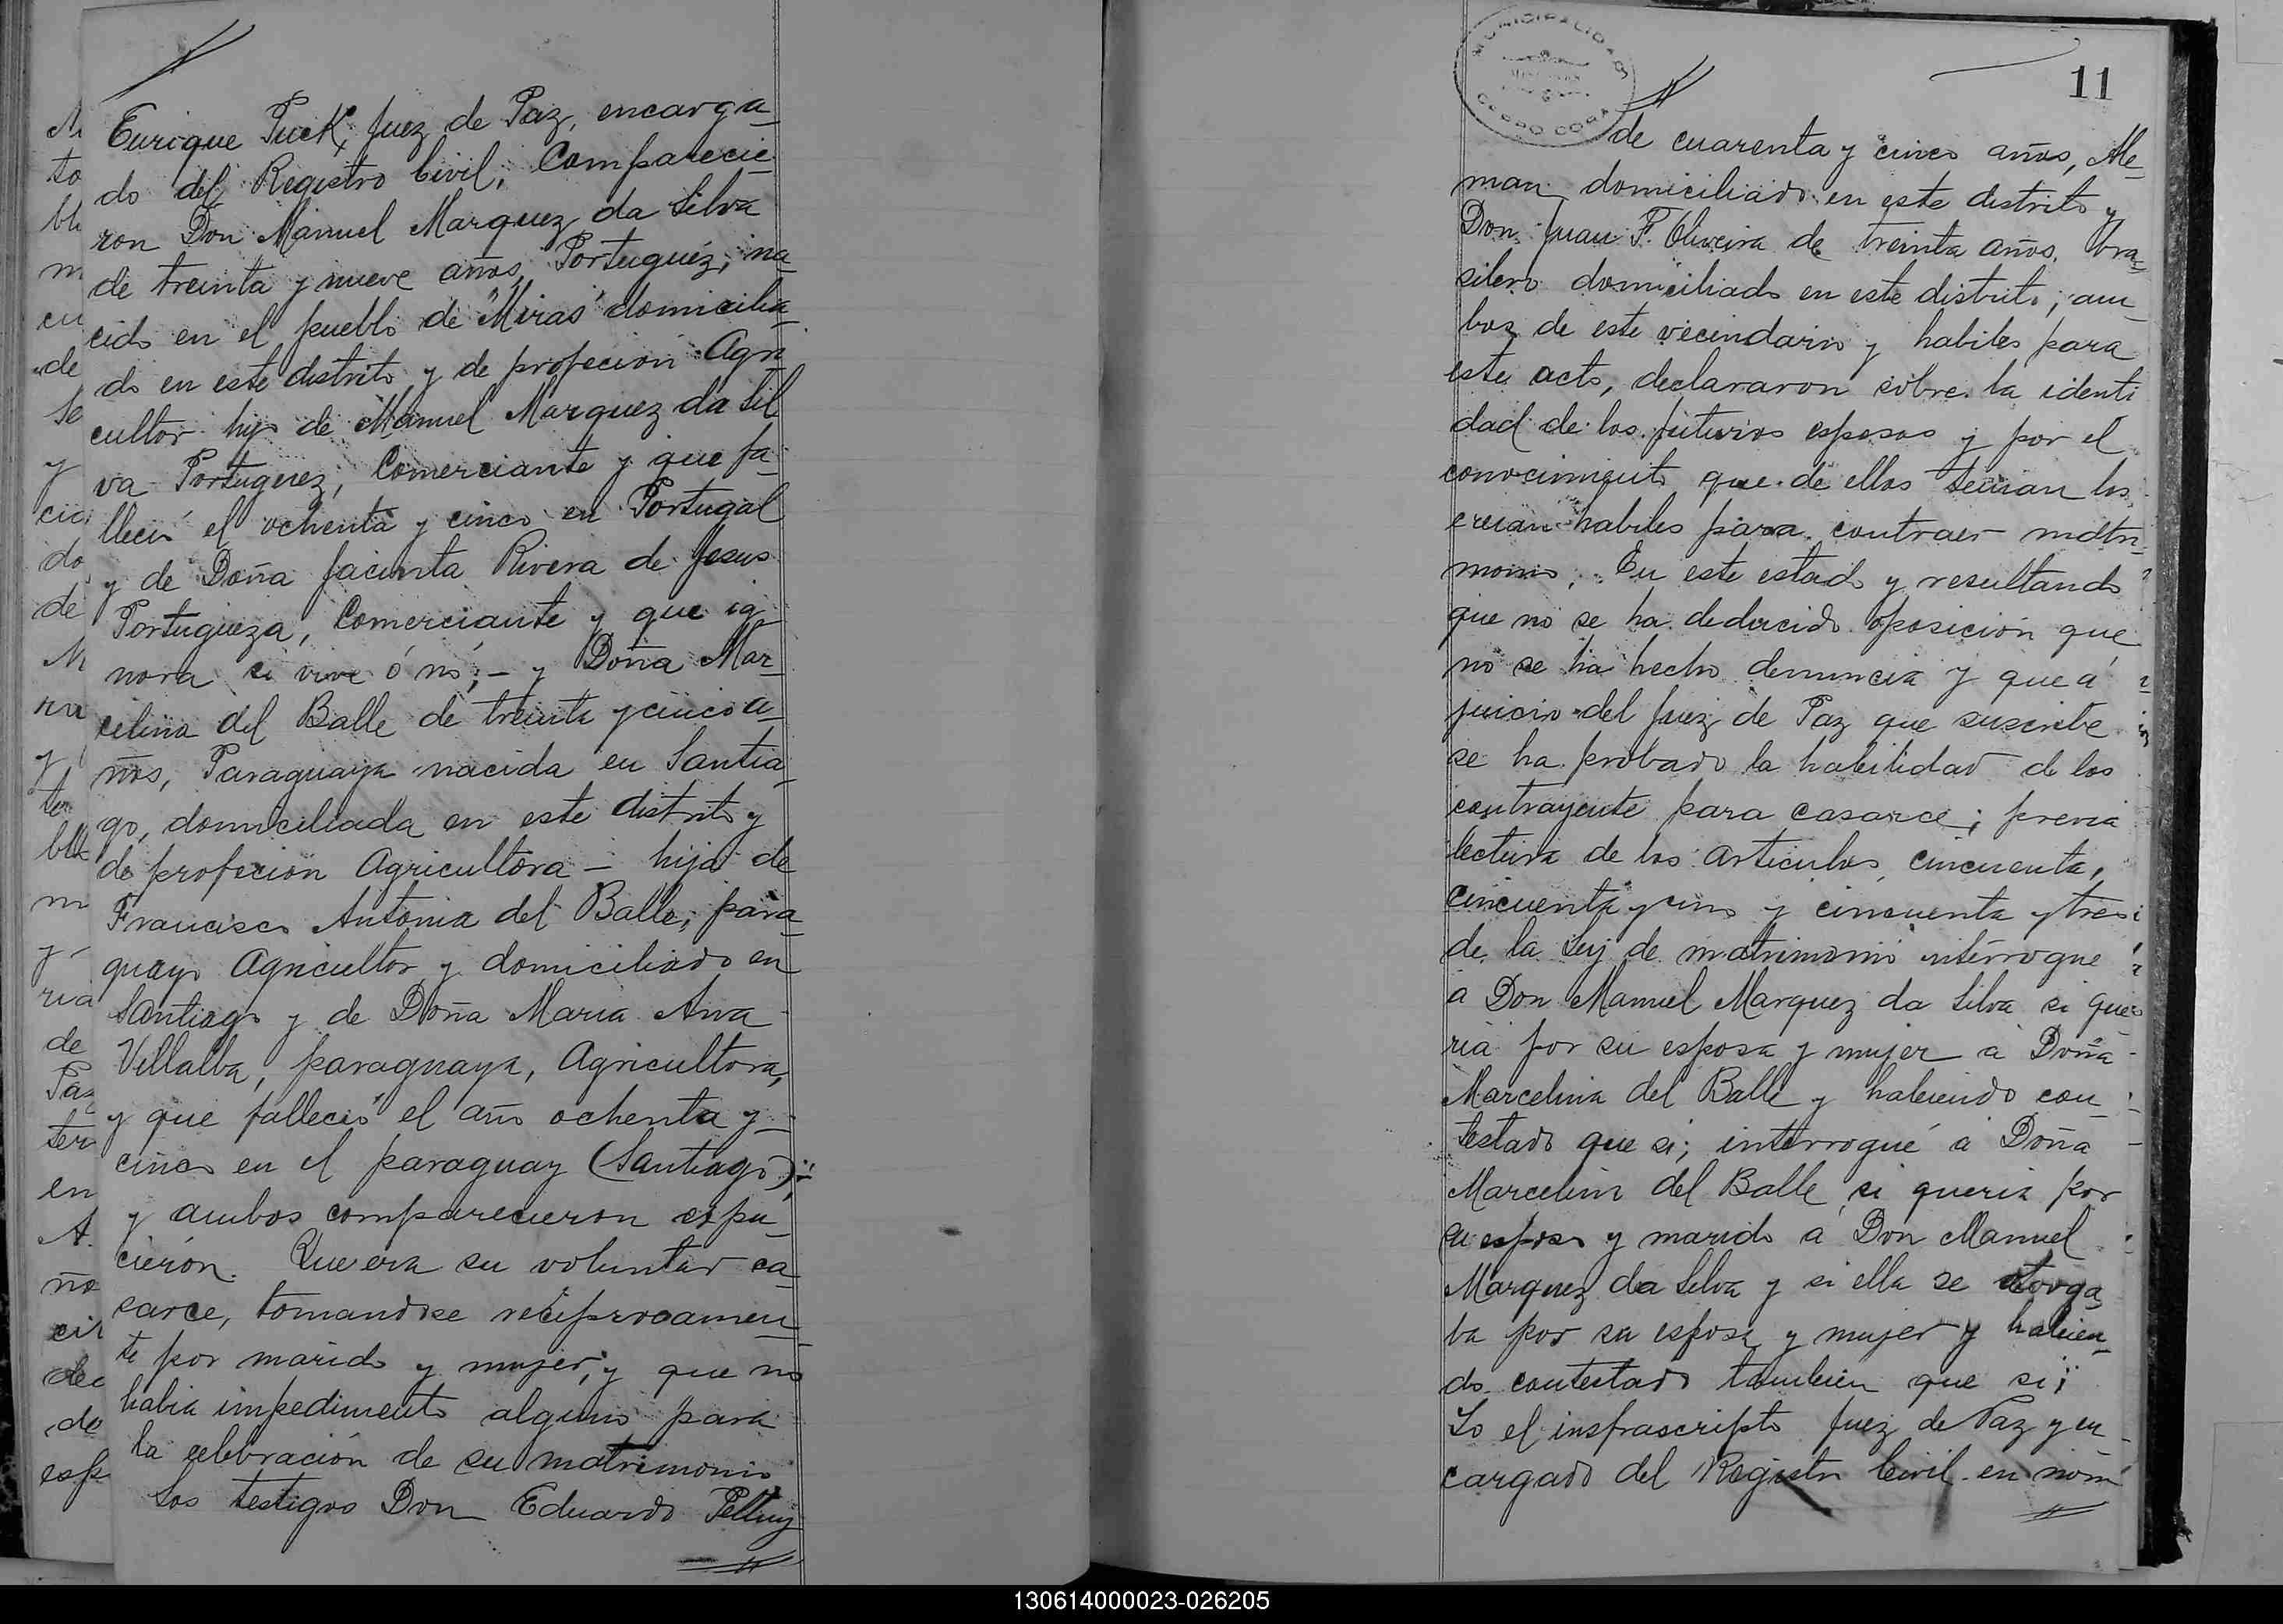 Enrique Puck, Juez de Paz, encarga_
do del Registro Civil; Comparecie_
ron Don Manuel Marquez da Silva
de treinta y nueve años, Portuguéz, na_
cido en el pueblo de "Miras" domicilia_
do en este distrito y de profecion Agri
cultor hijo de Manuel Marquez da Sil_
va Portuguez, Comerciante y que fa_
lleció el ochenta y cinco en Portugal
y de Doña Jacinta Rivera de Jesus
Portugueza, Comerciante y que ig_
nora si vive ó nó; – y Doña Mar_
celina del Balle de treinta y cinco a_
ños, Paraguaya nacida en Santia_
go, domiciliada en este distrito y
de profecion Agricultora – hija de
Francisco Antonia del Balle, para_
guayo Agricultor y domiciliado en
Santiago y de Doña Maria Ana
Villalba, paraguaya, Agricultora,
y que falleció el año ochenta y_
cinco en el paraguay (Santiago);
y ambos comparecieron espu_
cieron. Que era su voluntad ca_
sarce, tomandose reciprocamen_
te por marido y mujer, y que no
habia impedimento alguno para
la celebración de su matrimonio
Los testigos Don Eduardo
MUNICIPALIDAD
CERRO CORA
11
de cuarenta y cinco años, Ale_
man domiciliado en este distrito y
Don Juan F. Oliveira de treinta años, bra_
silero domiciliado en este distrito; am_
bos de este vecindario y habiles para
este acto, declararon sobre la identi
dad de los futuros esposos y por el
conocimiento que de ellos tenian los
creian habiles para contraer matri_
monio; En este estado y resultando
que no se ha deducido oposición que
no se ha hecho denuncia y que á
juicio del Juez de Paz que suscribe
se ha probado la habilidad de los
contrayente para casarce; previa
lectura de los articulos cincuenta,
cincuenta y uno y cincuenta y tres
de la Ley de matrimonio interrogue
a Don Manuel Marquez da Silva si que
ria por su esposa y mujer a Doña
Marcelina del Balle y habiendo con_
testado que si; interrogué a Doña
Marcelina del Balle si queria por
su esposo y marido a Don Manuel
Marquez da Silva y si ella se otorga_
ba por su esposa y mujer y habien_
do contestado tambien que si;
Yo el insfrascripto Juez de Paz y en_
cargado del Registro Civil en nom
130614000023-026205